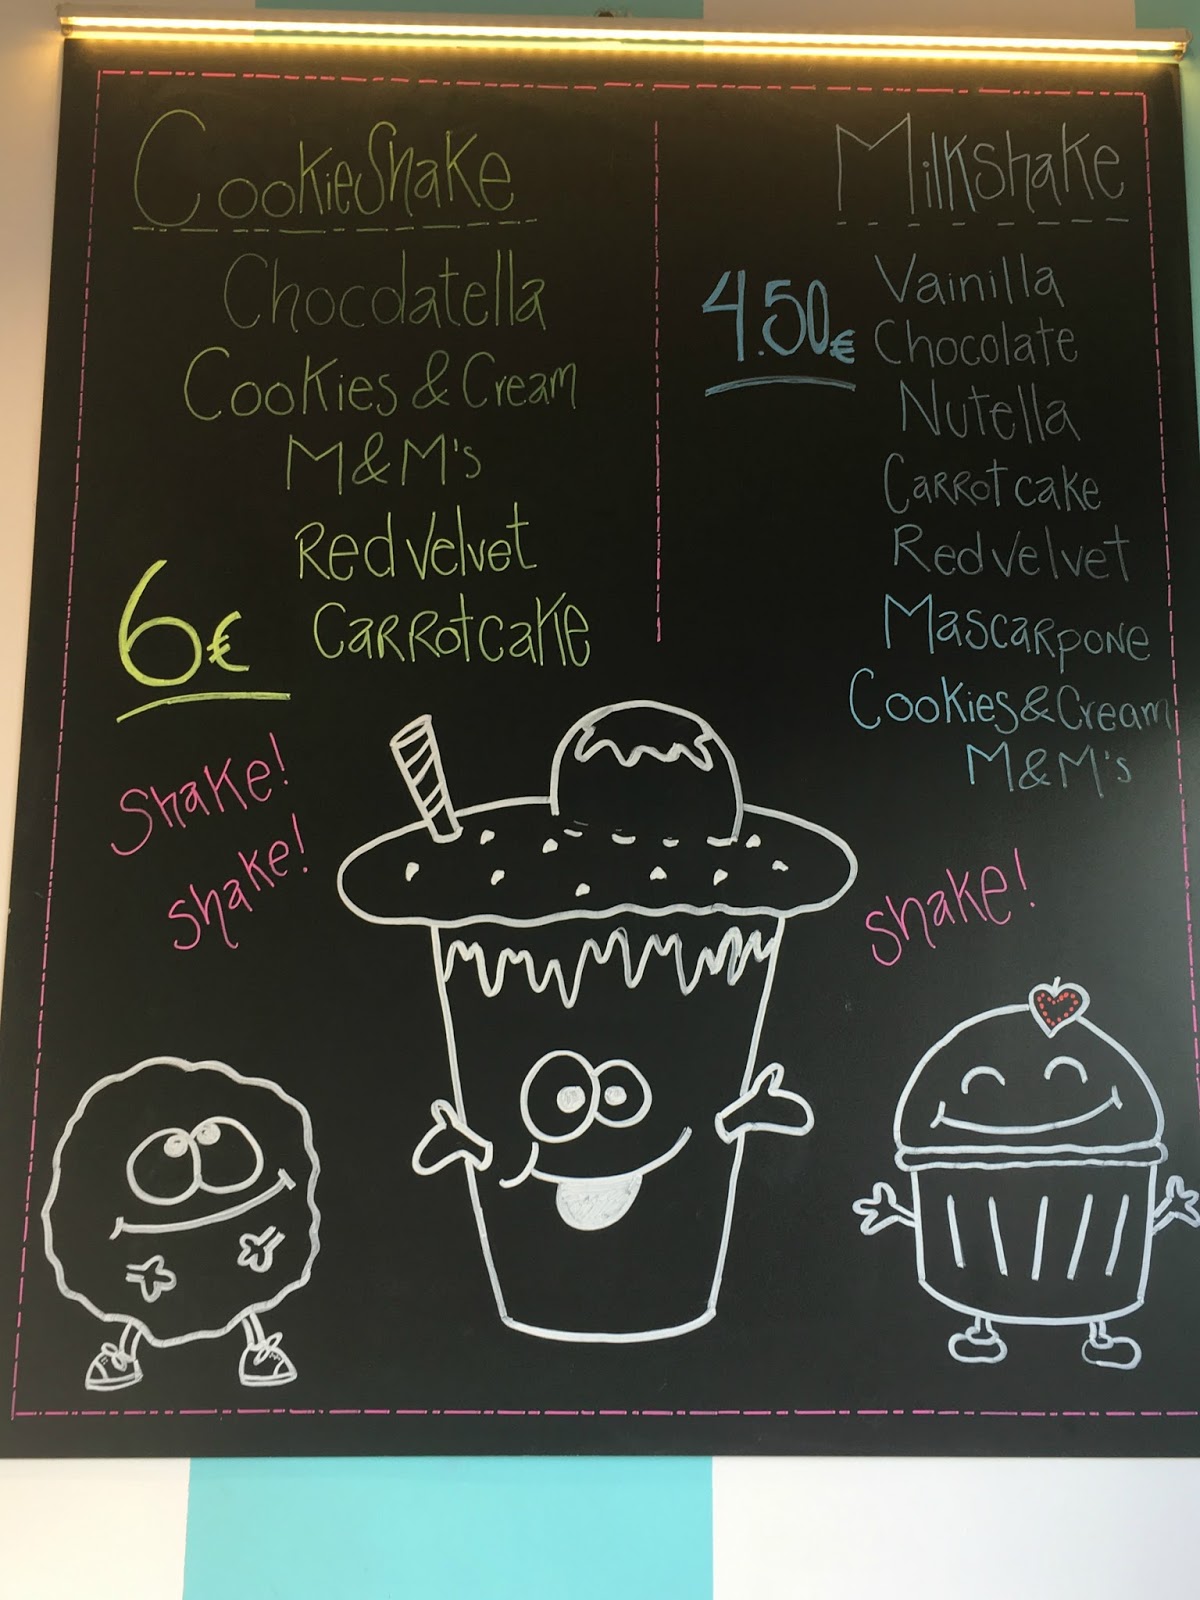 CookieShake
Chocolatella
Cookies & Cream
M&M's
Red Velvet
Carrotcake
6€
Milkshake
4.50€
Vainilla
Chocolate
Nutella
Carrot cake
Red velvet
Mascarpone
Cookies & Cream
M&M's
Shake!
shake!
shake!